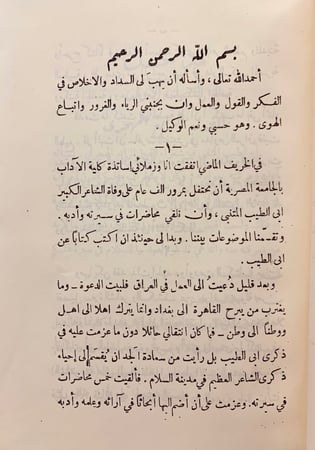 بسم الله الرحمن الرحيم
أحمدالله تعالى ، وأسأله أن يهب لى السداد والاخلاص في
الفكر والقول والعمل وان يجنبنى الرياء والغرور واتباع
الهوى . وهو حسبي ونعم الوكيل .
— ١ —
فى الخريف الماضى اتفقت انا وزملائى اساتذة كلية الآداب
بالجامعة المصرية أن نحتفل بمرور الف عام على وفاة الشاعر الكبير
ابى الطيب المتنبى ، وأن نلقي محاضرات في سيرته وأدبه .
وتقسّمنا الموضوعات بيننا . وبدا لى حينئذ ان اكتب كتابًا عن
ابى الطيب .
وبعد قليل دُعيتُ الى العمل في العراق فلبيت الدعوة – وما
يغترب من يبرح القاهرة الى بغداد وانما يترك اهلا الى اهل
ووطنًا الى وطن – فما كان انتقالي حائلا دون ما عزمت عليه في
ذكرى ابى الطيب بل رأيت من سعادة الجد ان يُقسَم لي إحياء
ذكرى الشاعر العظيم فى مدينة السلام . فألقيت خمس محاضرات
فى سيرته . وعزمت على أن أضم اليها أبحاثًا في آرائه وعلمه وأدبه